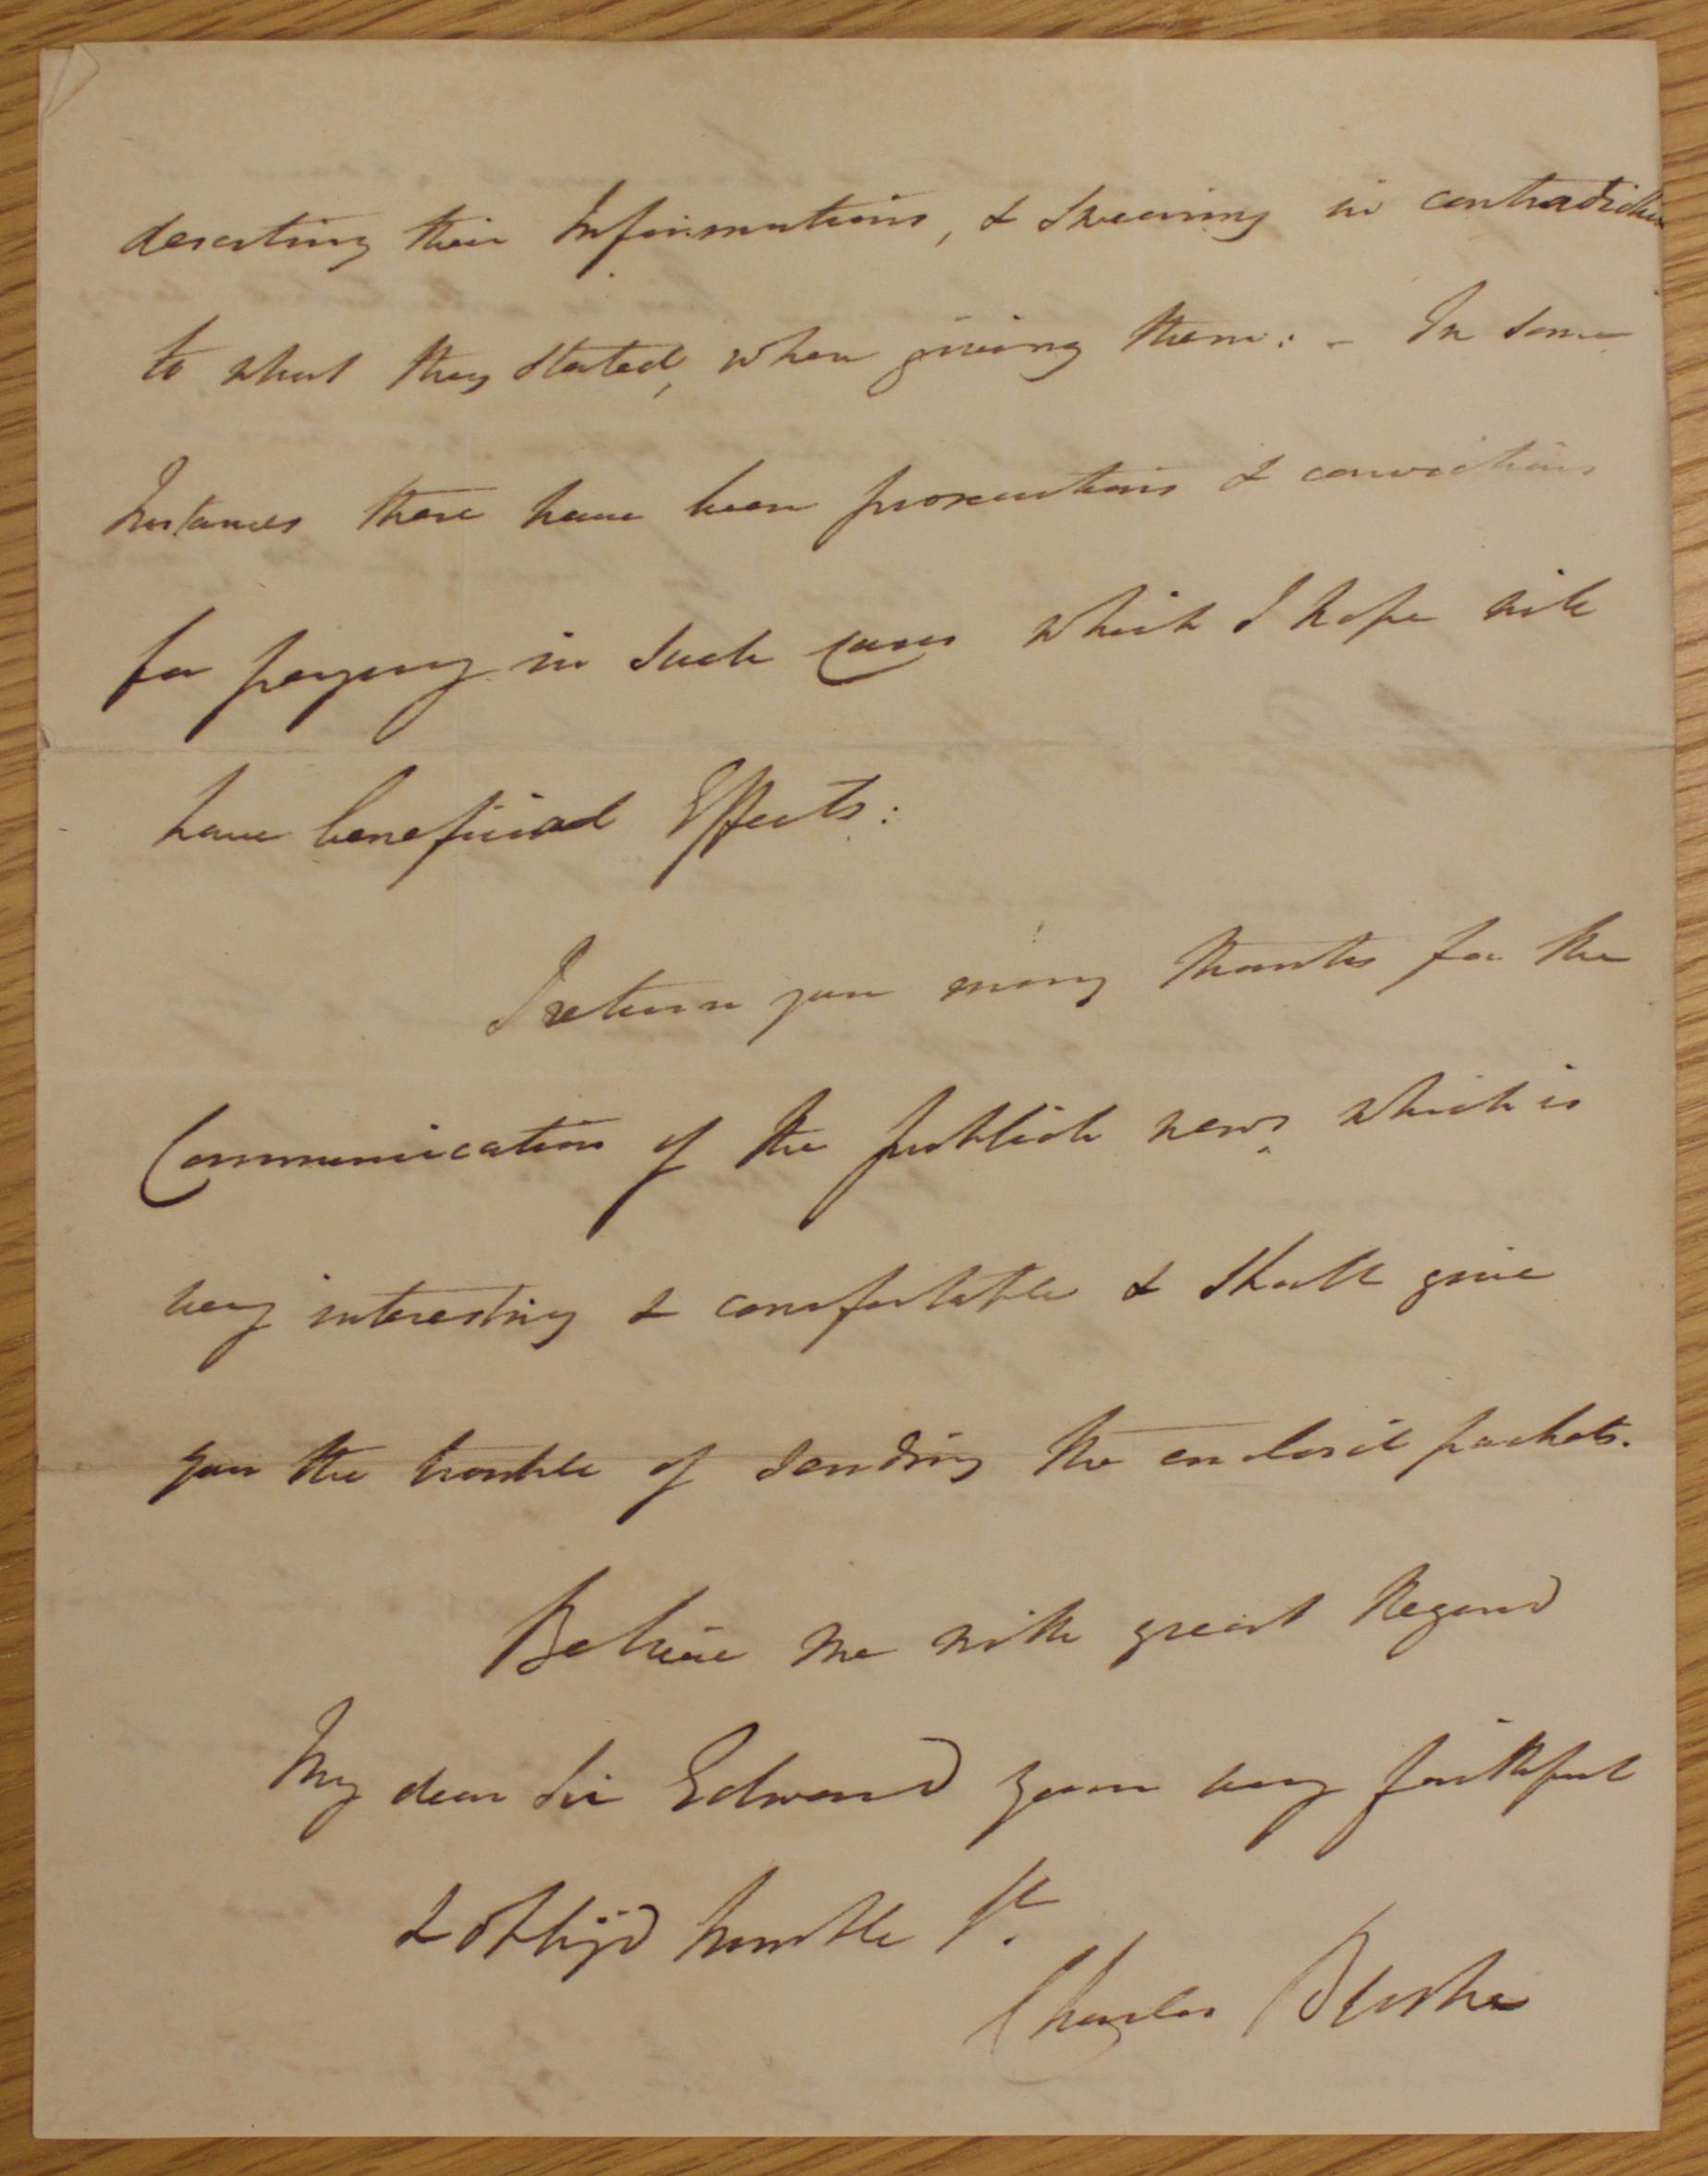 deserting their Informations, & Swearing in contradiction
to what they Stated, when giving them: - In some
Instances there have been prosecutions & convictions
for perjury in such Cases which I hope will
have beneficial Effects:
I return you many thanks for the
Communication of the publick news, which is
very interesting & comfortable & Shall give
you the trouble of Sending the enclosed packets.
Believe me with great Regard
My dear Sir Edward your very faithful
& obligd humble St.
Charles Bushe